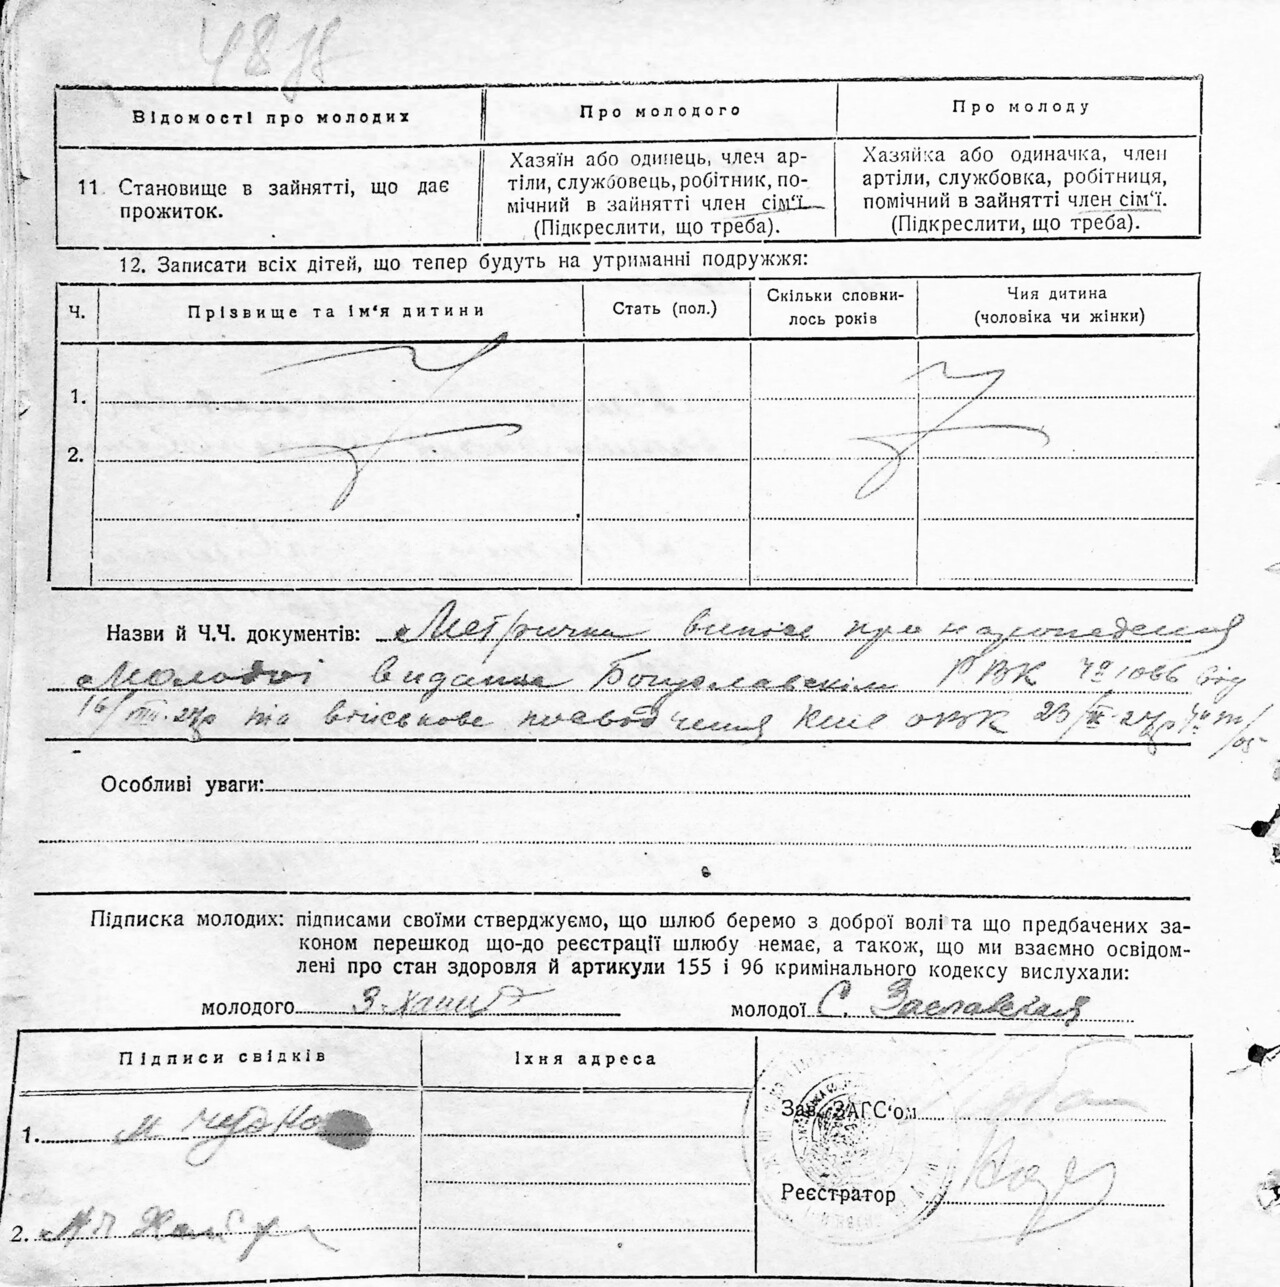 Відомості про молодих
Про молодого
Про молоду
11. Становище в зайнятті, що дає
прожиток.
Хазяїн або одинець, член ар-
тіли, службовець, робітник, по-
мічний в зайнятті член сім'ї.
(Підкреслити, що треба).
Хазяйка або одиначка, член
артіли, службовка, робітниця,
помічний в зайнятті член сім'ї.
(Підкреслити, що треба).
12. Записати всіх дітей, що тепер будуть на утриманні подружжя:
Ч.
Прізвище та ім'я дитини
Стать (пол.)
Скільки сповни-
лось років
Чия дитина
(чоловіка чи жінки)
1.
2.
Назви й Ч.Ч. документів: Метрична випись про народження
Молодої видана Богуславским РВК Ч° 1066 від
16/VIII-27р та військове посвідчення ОВК 23/ -27р
Особливі уваги:
Підписка молодих: підписами своїми стверджуємо, що шлюб беремо з доброї волі та що предбачених за-
коном перешкод що-до реєстрації шлюбу немає, а також, що ми взаємно освідом-
лені про стан здоровля й артикули 155 і 96 кримінального кодексу вислухали:
молодого
молодої С. Заславская
Підписи свідків
Їхня адреса
1.
2.
Зав. ЗАГС'ом
Реєстратор